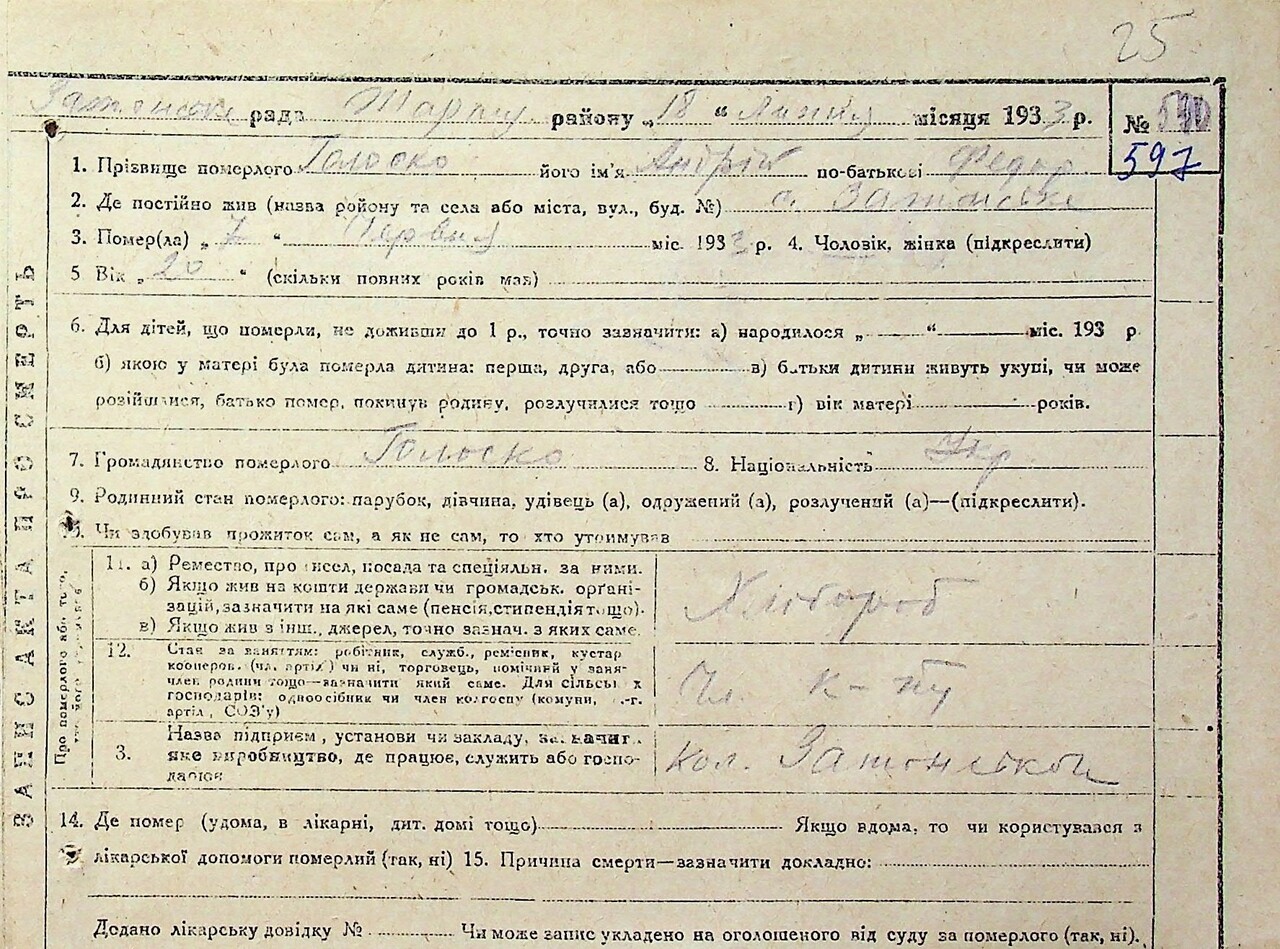 25
рада району „18“ Липня місяця 1933 р. №
597
1. Прізвище померлого Голоско його ім'я Андрій по-батькові Федор
2. Де постійно жив (назва ройону та села або міста, вул., буд. №) с. Затонське
3. Помер(ла) „7“ Червня міс. 1933 р. 4. Чоловік, жінка (підкреслити)
5 Вік „20“ (скільки повних років мав)
6. Для дітей, що померли, не доживши до 1 р., точно зазначити: а) народилося „ “ міс. 193 р.
б) якою у матері була померла дитина: перша, друга, або в) батьки дитини живуть укупі, чи може
розійшлися, батько помер, покинув родину, розлучилися тощо г) вік матері років.
7. Громадянство померлого Голоско 8. Національність Укр
9. Родинний стан померлого: парубок, дівчина, удівець (а), одружений (а), розлучений (а)—(підкреслити).
Чи здобував прожиток сам, а як не сам, то хто утримував
ЗАПИС АКТА ПРО СМЕРТЬ
Про померлого або того,
11. а) Ремество, про исел, посада та спеціяльн. за ними.
б) Якщо жив на кошти держави чи громадськ. орґані-
зацій, зазначити на які саме (пенсія, стипендія тощо).
в) Якщо жив з інш., джерел, точно зазнач. з яких саме.
Хлібороб
12. Стан за заняттям: робітник, служб., ремісник, кустар
кооперов. (чл. артіл) чи ні, торговець, помічний у заня-
член родини тощо—зазначити який саме. Для сільськ х
господарів: одноосібник чи член колгоспу (комуни, -г.
артіл., СОЗ'у)
Чл. к-пу
3. Назва підприєм, установи чи закладу, зазначит.
яке виробництво, де працює, служить або госпо-
дарює
Кол. Затонській
14. Де помер (удома, в лікарні, дит. домі тощо) Якщо вдома, то чи користувався з
лікарської допомоги померлий (так, ні) 15. Причина смерти—зазначити докладно:
Додано лікарську довідку № Чи може запис укладено на оголошеного від суду за померлого (так, ні).